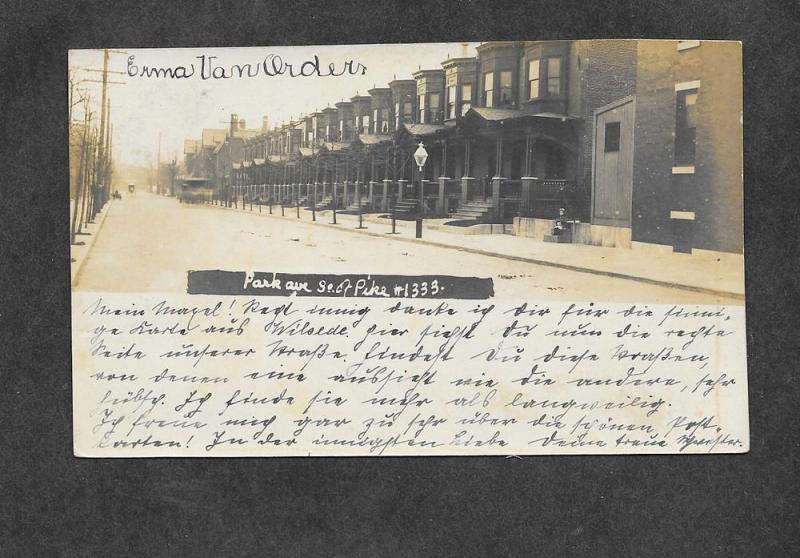 Erma Van Order.
Park ave So. of Pike #1333.
Mein Mazel! Recht innig danke ich Dir für die sinni-
ge Karte aus Wilsede. Hier siehst Du nun die rechte
Seite unserer Straße. Findest Du diese Straßen,
von denen eine aussieht wie die andere, sehr
hübsch. Ich finde sie mehr als langweilig.
Ich freue mich gar zu sehr über die schönen Post-
karten! In der innigsten Liebe Deine treue Schwester.